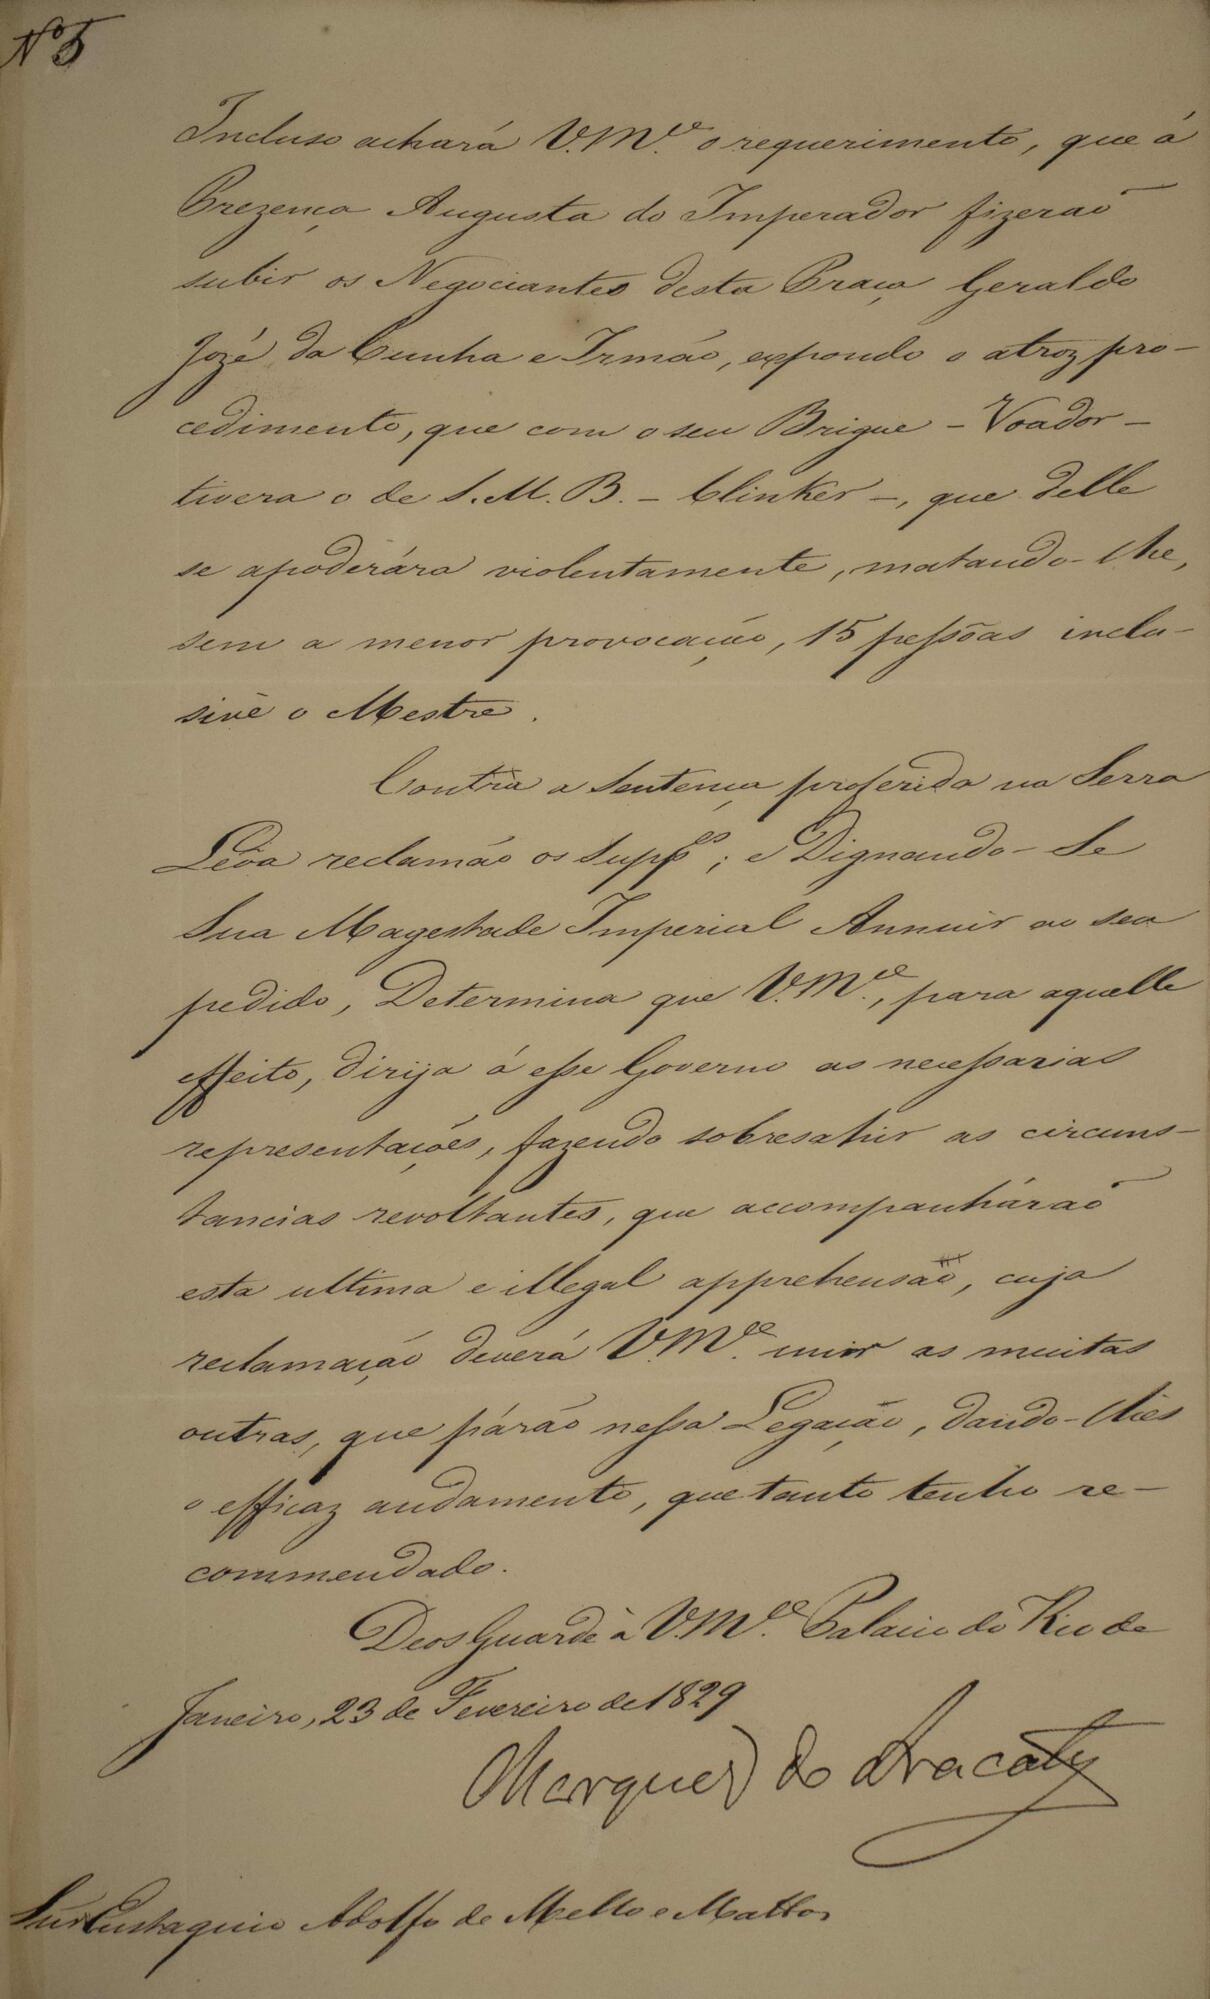 Nº 5
Incluso achará V.M.ce o requerimento, que á
Prezença Augusta do Imperador fizeraõ
subir os Negociantes desta Praça Geraldo
Jozé da Cunha e Irmão, expondo o atroz pro-
cedimento, que com o seu Brigue - Voador -
tivera o de S.M.B. - Clinker -, que delle
se apoderára violentamente, matando-lhe,
sem a menor provocação, 15 pessôas inclu-
sivè o Mestre.
Contra a Sentença proferida na Serra
Lêoa reclamão os Supp.es; e Dignando-Se
Sua Magestade Imperial Annuir ao seu
pedido, Determina que V.M.ce, para aquelle
effeito, dirija á esse Governo as necessarias
representações, fazendo sobresahir as circuns-
tancias revoltantes, que accompanháraõ
esta ultima e illegal apprehensaõ, cuja
reclamação deverá V.M.ce unir as muitas
outras, que párão nessa Legação, dando-lhes
o efficaz andamento, que tanto tenho re-
commendado.
Deos Guarde à V.M.ce Palacio do Rio de
Janeiro, 23 de Fevereiro de 1829
Marquez do Aracaty
Snr Eustaquio Adolfo de Mello e Mattos